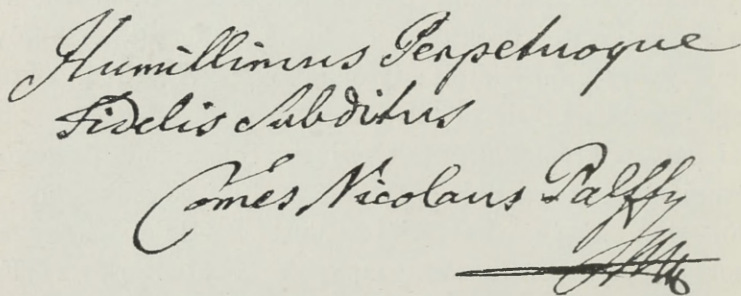 Humillimus Perpetuoque
Fidelis Subditus
Comes Nicolaus Palffy